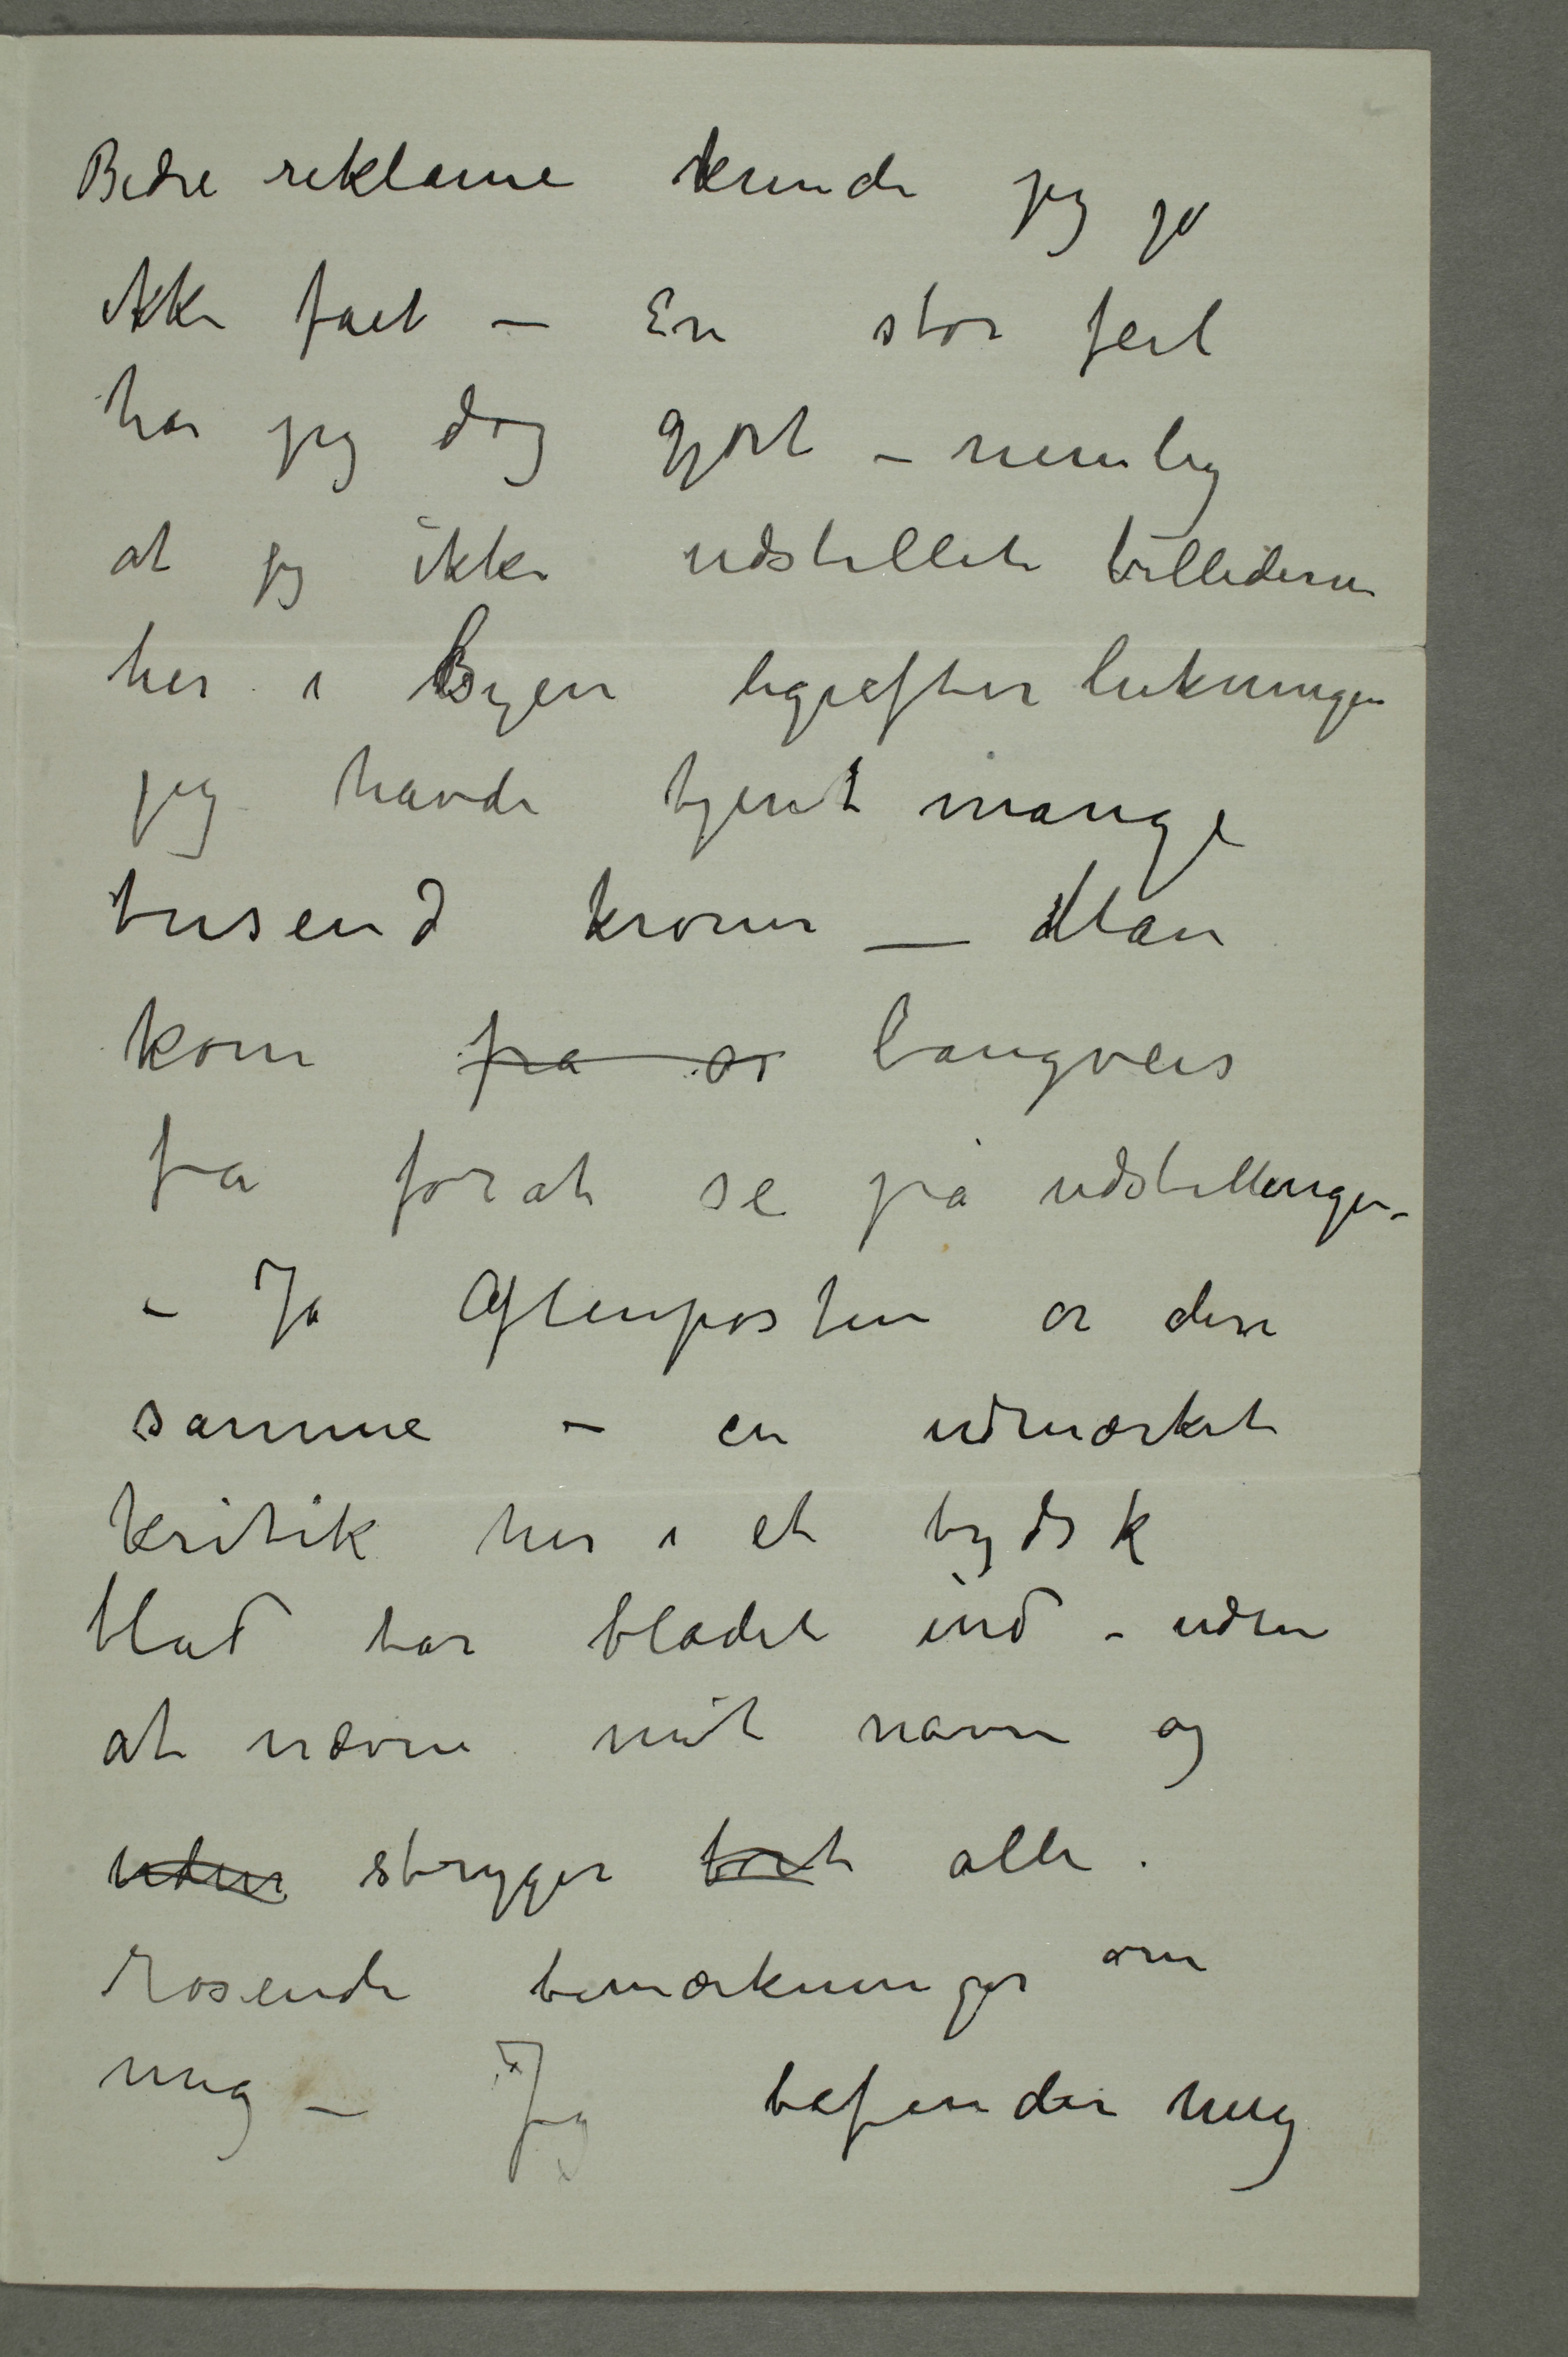 Bedre reklame kunde jeg jo
ikke faet – En stor feil
har jeg dog gjort – nemlig
at jeg ikke udstillete billederne
her i Byen ligeefter lukningen
jeg havde tjent mange
tusend kroner – Man
kom fra so langveis
fra forat se på udstillingen –
– Ja Aftenposten er den
samme – en udmærket
kritik her i et tydsk
blad tar bladet ind – uden
at nævne mit navn og
uden stryger bort alle
rosende bemærkninger om
mig – Jeg befinder mig